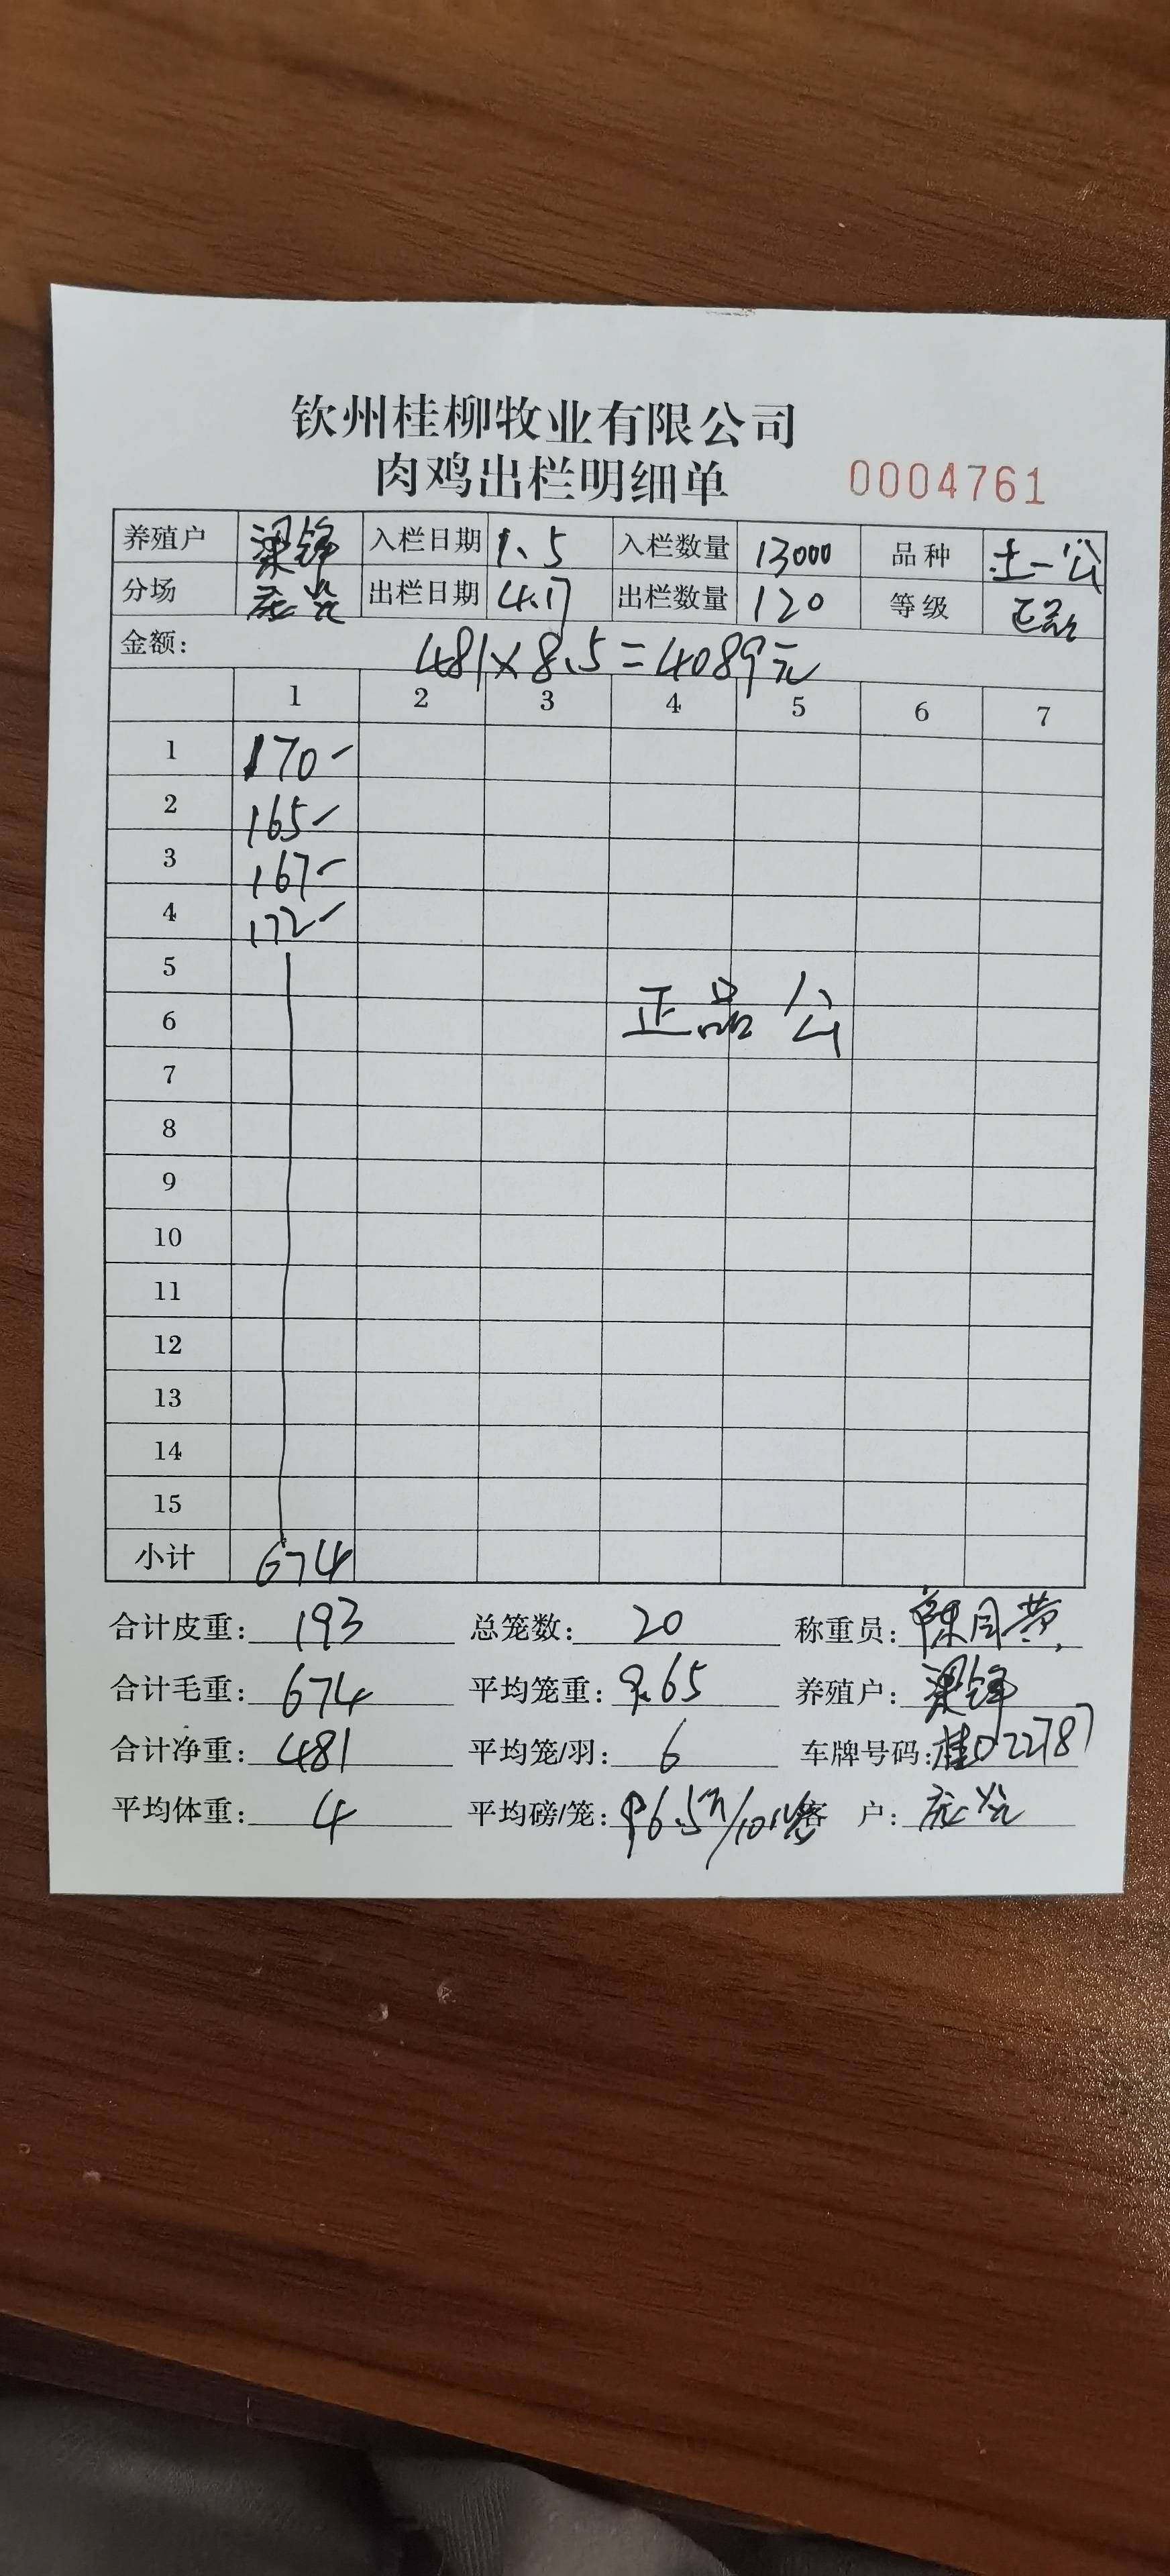 钦州桂柳牧业有限公司
肉鸡出栏明细单 0004761
养殖户 梁锦 入栏日期 1.5 入栏数量 13000 品种 土一公
分场 出栏日期 4.17 出栏数量 120 等级 正品
金额: 481×8.5=4089元
1 2 3 4 5 6 7
1 170-
2 165-
3 167-
4 172-
5
6 正品 公
7
8
9
10
11
12
13
14
15
小计 674
合计皮重: 193 总笼数: 20 称重员: 陈月黄
合计毛重: 674 平均笼重: 9.65 养殖户: 梁锦
合计净重: 481 平均笼/羽: 6 车牌号码: 桂D22787
平均体重: 4 平均磅/笼: 客 户: